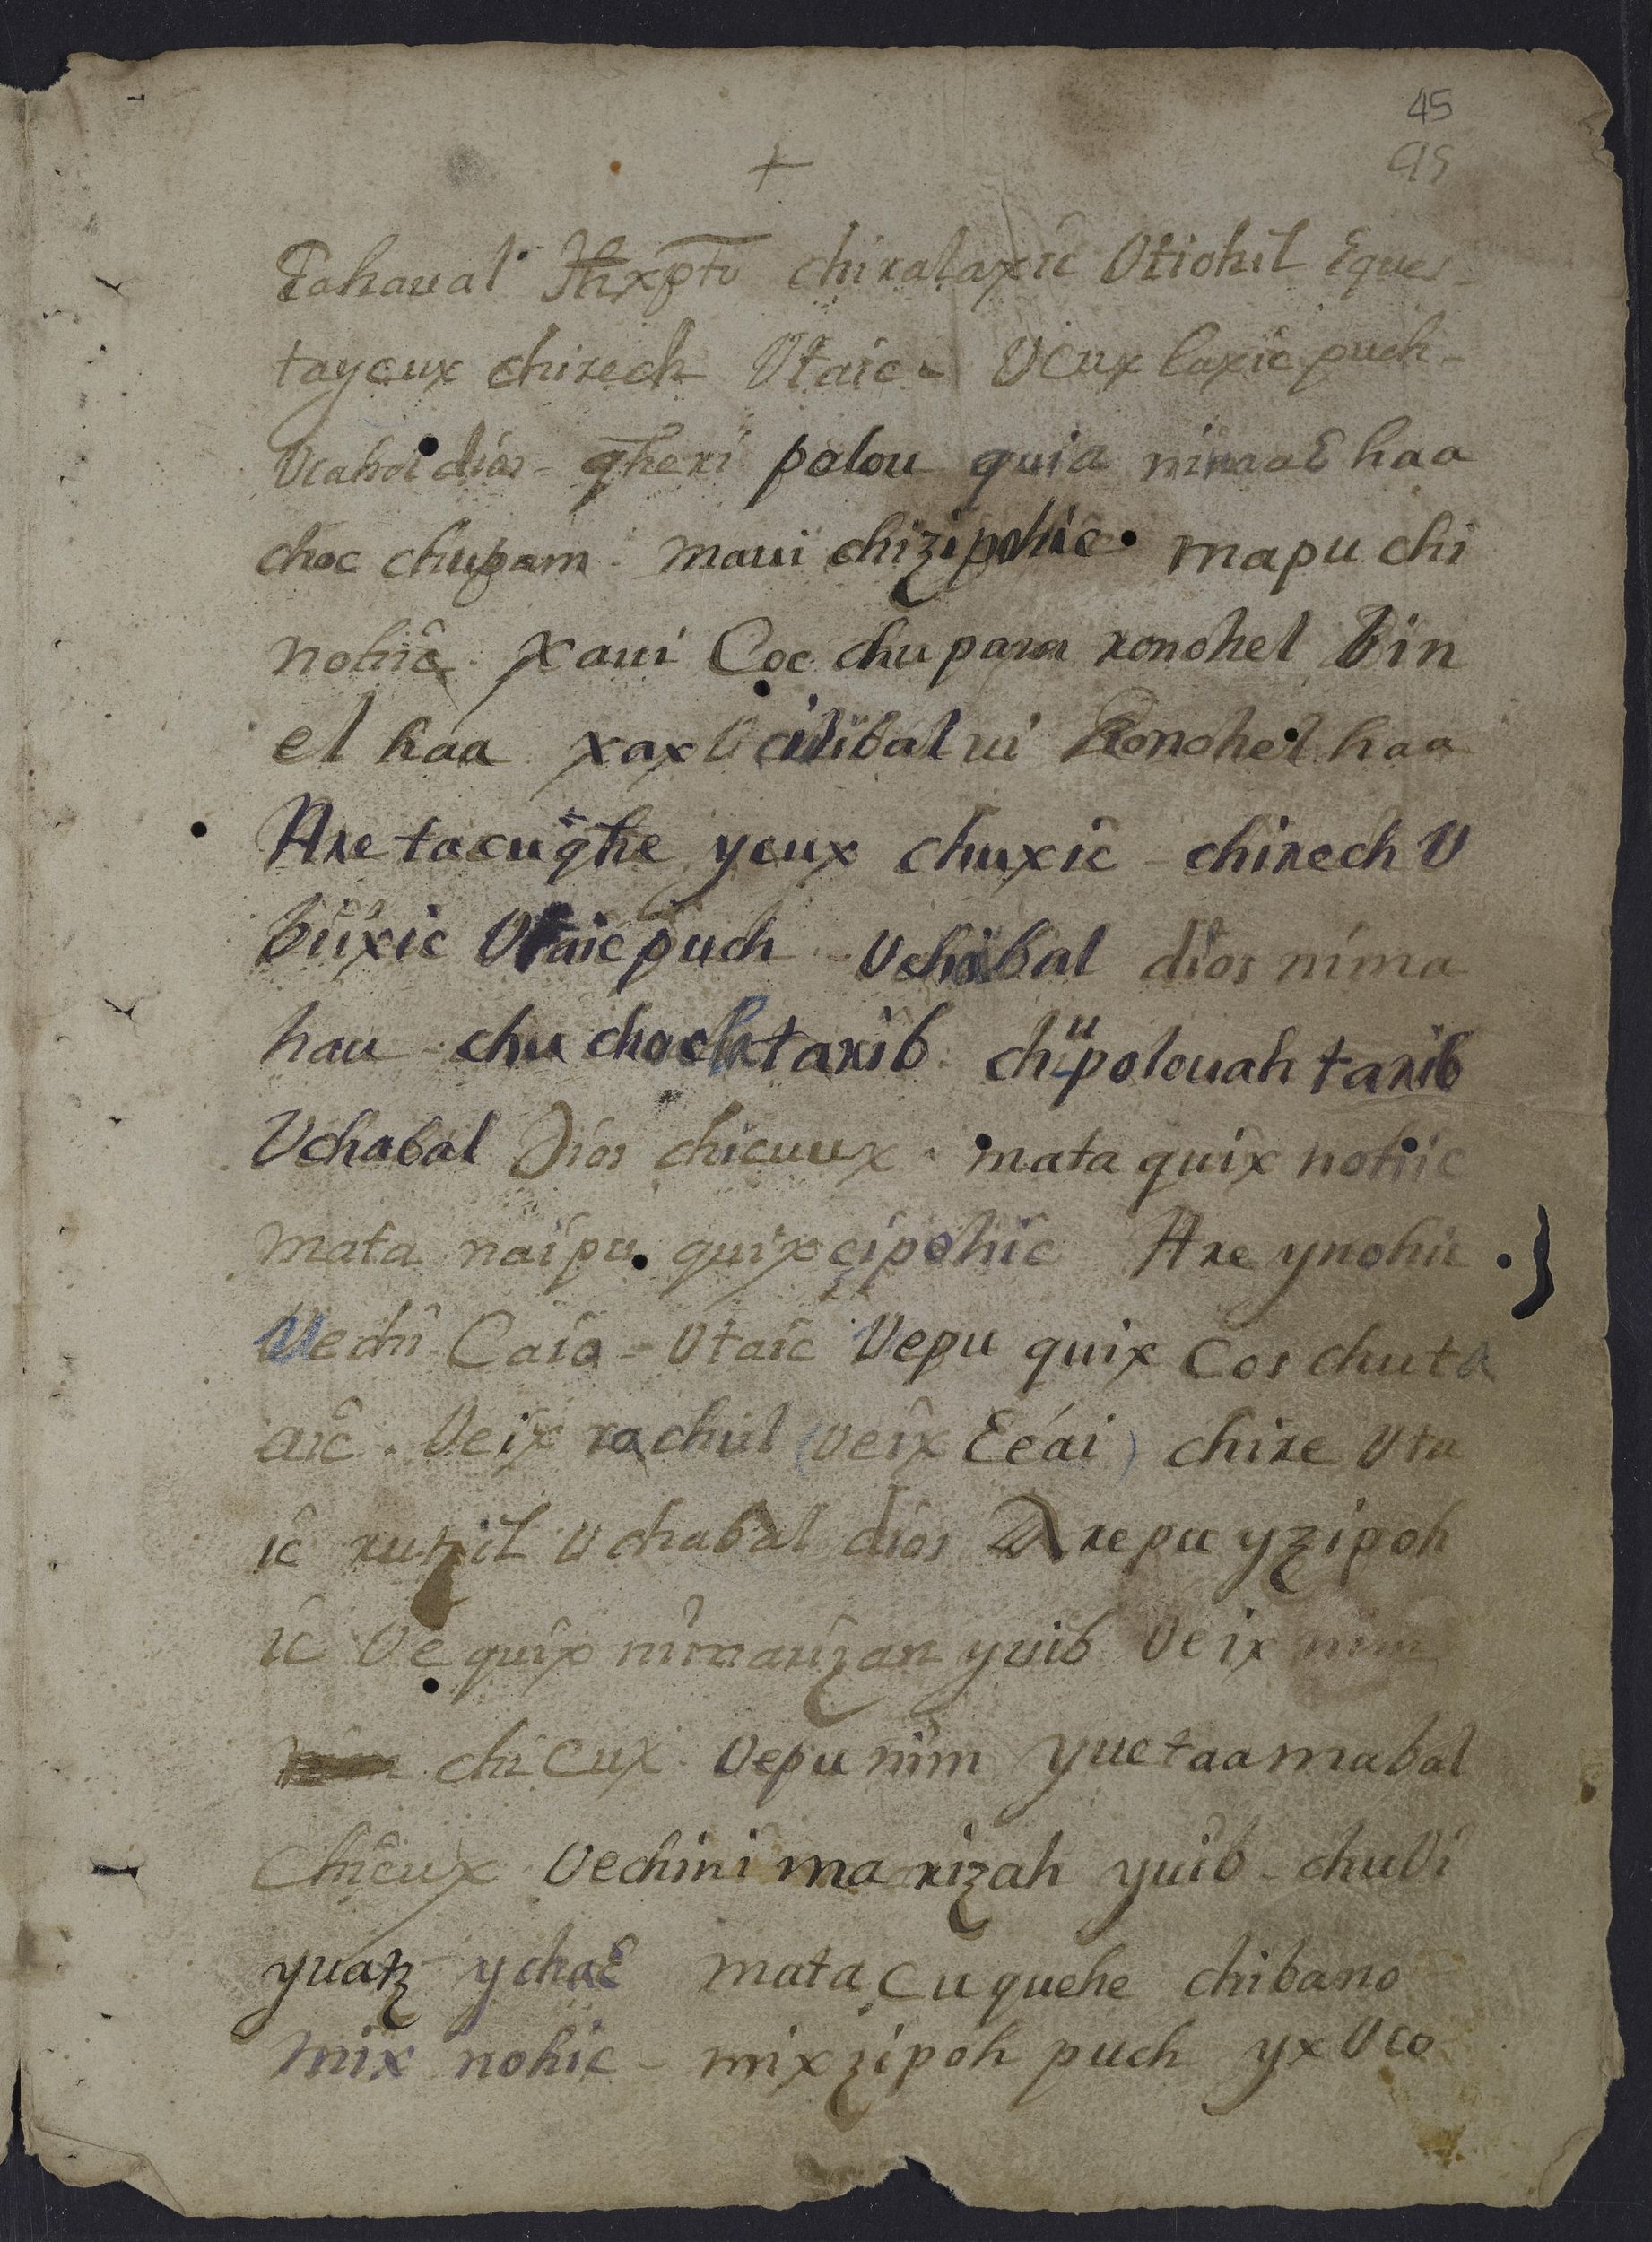 45
95
+
Cahaual Jhxpto chiralaxic Utiohil Eques-
tayeux chirech Utaic - Ucux laxic puch-
Ucahol dios - qheri polou quia nimaƐ haa
choc chupam - maui chizipohic. mapu chi
nohic. xaui Coc chupam ronohel bin
el haa xax U cilibal ui Ronohel haa
Are tacuqhe yeux chuxic - chirech U
buxic Utaic puch - Uchabal dios nima
hau - chu chochtarib chipolouah tarib
Uchabal Dios chicuux. mata quix nohic
mata naipu. quixcipohic Are ynohic
Uechi Caio - Utaic Uepu quix Cos chuta
aic. Ueix rachul (ueix Eeai) chire Uta
ic rutzil Uchabal dios Arepu yzipoh
ic Ue quix nimarizan yuib Ue ix nim
chicux. Uepu nim yuetaamabal
chicux Uechini marizah yuib - chuUi
yuatz ychaƐ mata cu quehe chibano
mix nohic - mixzipoh puch yx Uco